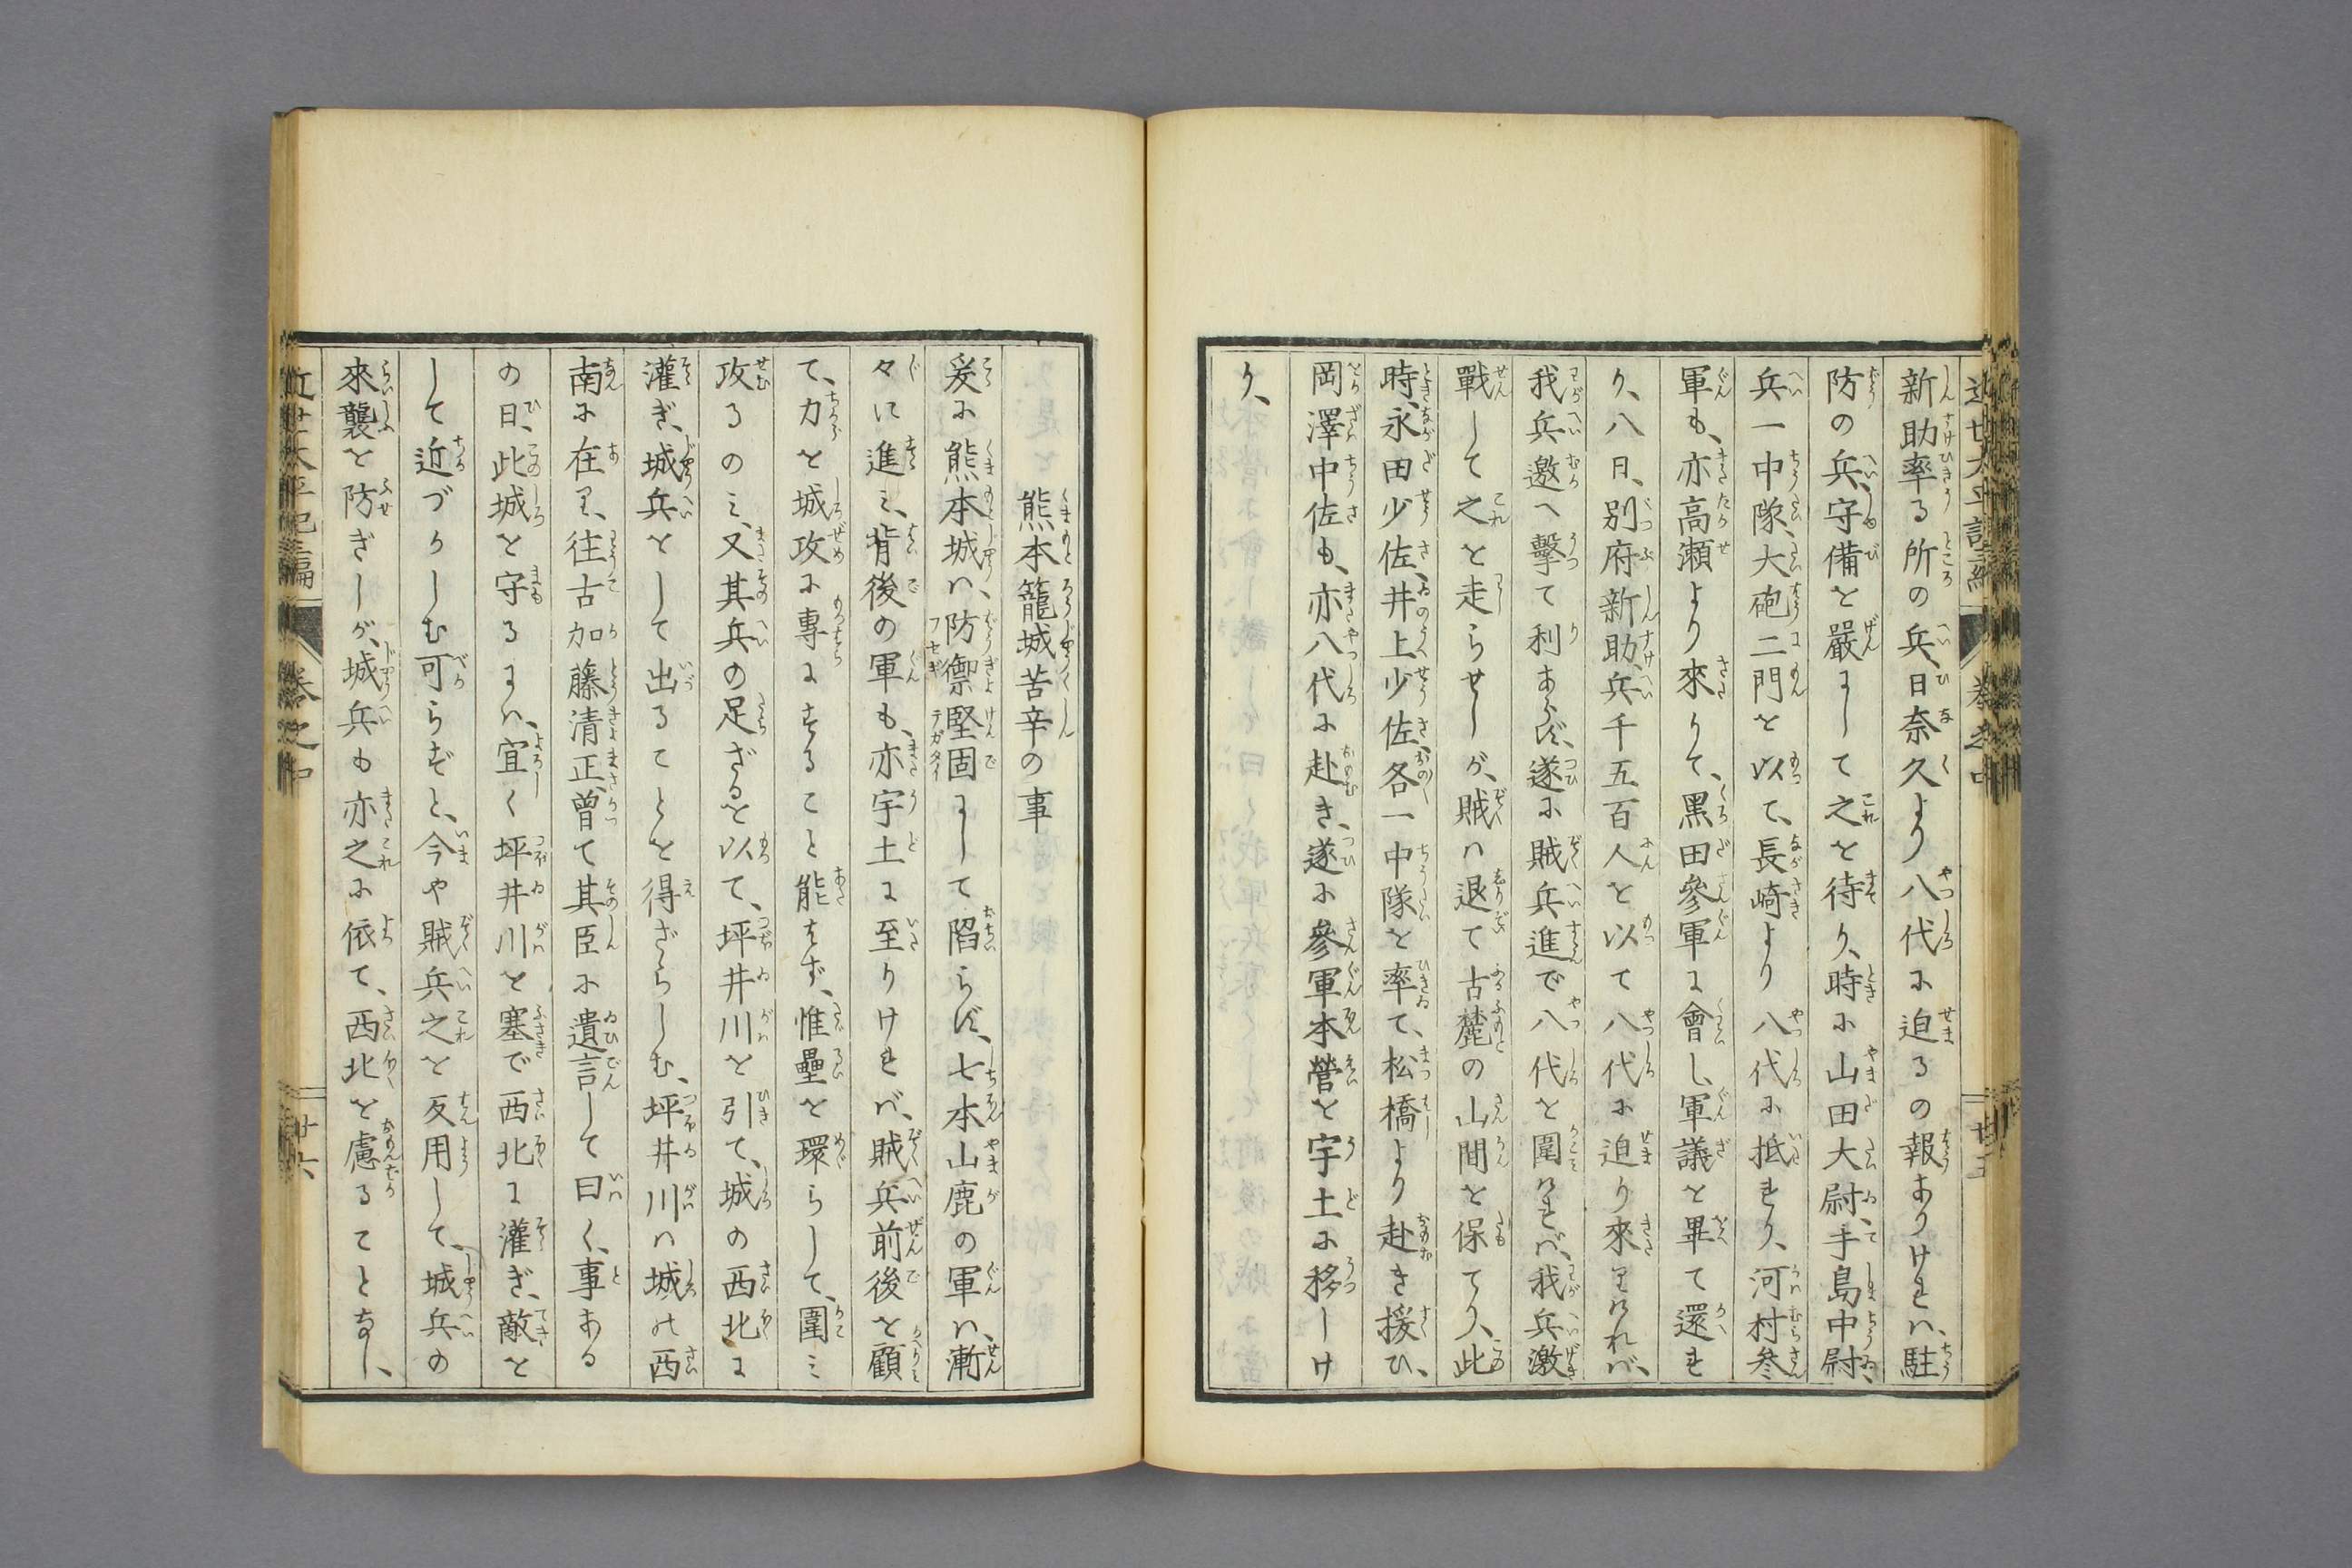 新助率る所の兵、日奈久より八代に迫るの報ありければ、駐
防の兵、守備を嚴にして之を待り、時に山田大尉、手島中尉、
兵一中隊、大砲二門を以て、長崎より八代に抵れり、河村參
軍も、亦高瀬より來りて、黒田參軍に會し、軍議を畢て還れ
り、八日、別府新助、兵千五百人を以て八代に迫り來りければ、
我兵邀へ擊て利あらず、遂に賊兵進で八代を圍ければ、我兵激
戰して之を走らせしが、賊は退て古麓の山間を保てり、此
時、永田少佐、井上少佐、各一中隊を率て、松橋より赴き援ひ、
岡澤中佐も、亦八代に赴き、遂に參軍本營を宇土に移しけ
り、
熊本籠城苦辛の事
爰に熊本城は、防禦堅固にして陷らず、七本山鹿の軍は、漸
々に進み、背後の軍も、亦宇土に至りければ、賊兵前後を顧
て、力を城攻に專にすること能はず、惟壘を環らして、圍み
攻るのみ、又其兵の足ざるを以て、坪井川を引て、城の西北に
灌ぎ、城兵をして出ることを得ざらしむ、坪井川は城の西
南に在り、往古加藤清正、曾て其臣に遺言して曰く、事ある
の日、此城を守るには、宜く坪井川を塞で西北に灌ぎ、敵を
して近づかしむ可らずと、今や賊兵之を反用して、城兵の
來襲を防ぎしが、城兵も亦之に依て、西北を慮ることなし、
近世太平記編
卷之中
廿六